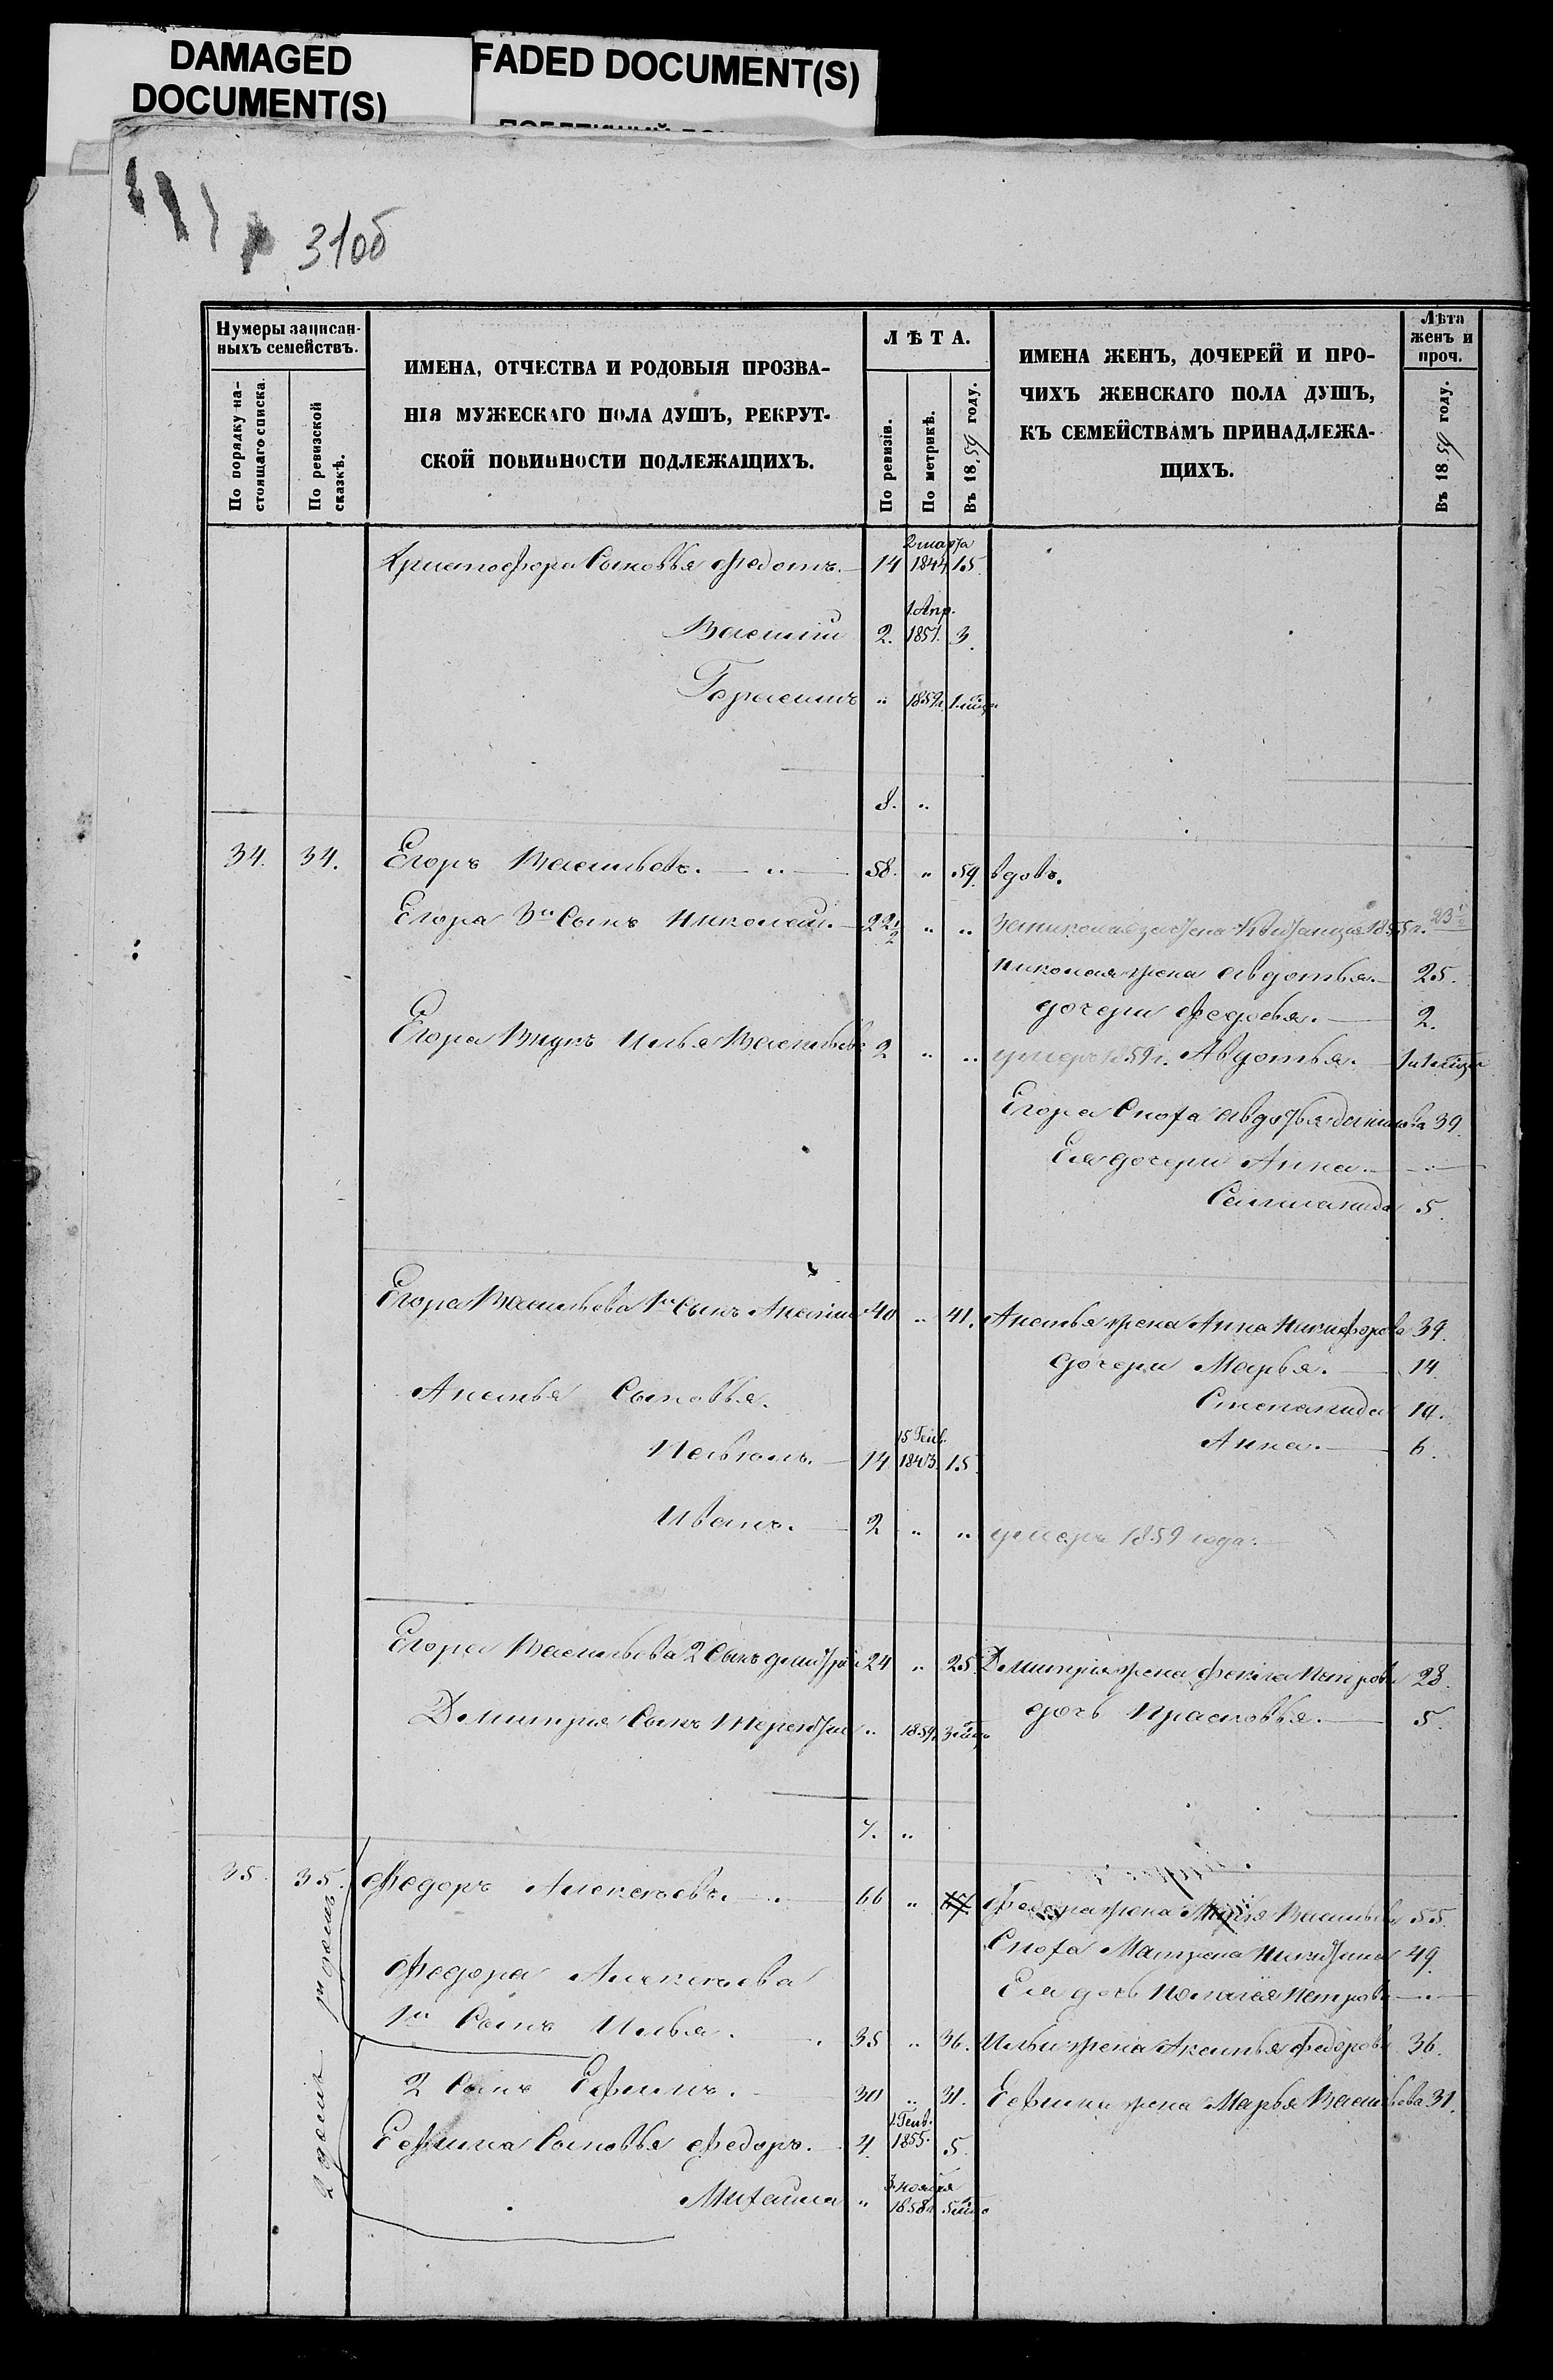 DAMAGED
DOCUMENT(S)
FADED DOCUMENT(S)
31об
Нумеры записан-
ныхъ семействъ.
По порядку на-
стоящаго списка.
По ревизской
сказкѣ.
ИМЕНА, ОТЧЕСТВА И РОДОВЫЯ ПРОЗВА-
НІЯ МУЖЕСКАГО ПОЛА ДУШЪ, РЕКРУТ-
СКОЙ ПОВИННОСТИ ПОДЛЕЖАЩИХЪ.
ЛѢТА.
По ревизіи.
По метрикѣ.
Въ 1859 году.
ИМЕНА ЖЕНЪ, ДОЧЕРЕЙ И ПРО-
ЧИХЪ ЖЕНСКАГО ПОЛА ДУШЪ,
КЪ СЕМЕЙСТВАМЪ ПРИНАДЛЕЖА-
ЩИХЪ.
Лѣта
женъ и
проч.
Въ 1859 году.
2 марта
Христофора Сыновья Федотъ. 14 1844 15.
1. Апр.
Василій 2. 1857. 3.
Герасимъ " 1859г.
8. "
34. 34. Егоръ Васильевъ. " 58. " 59. вдовъ.
Егора 3й Сынъ Николай. 22 1/2 " " 1855г.
Николая жена Авдотья. 25.
дочери Федосья. 2.
Егора Внукъ Илья Васильевъ 2 " " умеръ 1859г. Авдотья.
Егора Сноха Авдотья 39.
Ея дочери Анна. "
5.
Егора Васильева 1й Сынъ Ананій 40 " 41. Ананья жена Анна Никифорова 39.
дочери Марья. 14.
Ананья Сыновья.
Степанида 10.
15 Генв.
Анна. 6.
Павелъ. 14 1843. 15.
Иванъ. 2 " " умеръ 1859 года.
Егора Васильева 2 Сынъ Дмитрій 24 " 25. Дмитрія жена Фекла Петрова 28.
Дмитрія Сынъ Терентій " 1859.
дочь Прасковья. 5.
7. "
35. 35. Федоръ Алексѣевъ. " 66 " 67. жена Марья Васильева 55.
Сноха Матрена Никитина 49.
Федора Алексѣева
Ея дочь Пелагея Петрова "
1й Сынъ Илья. 35 " 36. Ильи жена Аксинья Федорова 36.
2 Сынъ Ефимъ. 30 " 31. Ефима жена Марья Васильева 31.
1. Генв.
Ефима Сыновья Федоръ. 4. 1855. 5.
3. ноября
Михаила " 1858г.